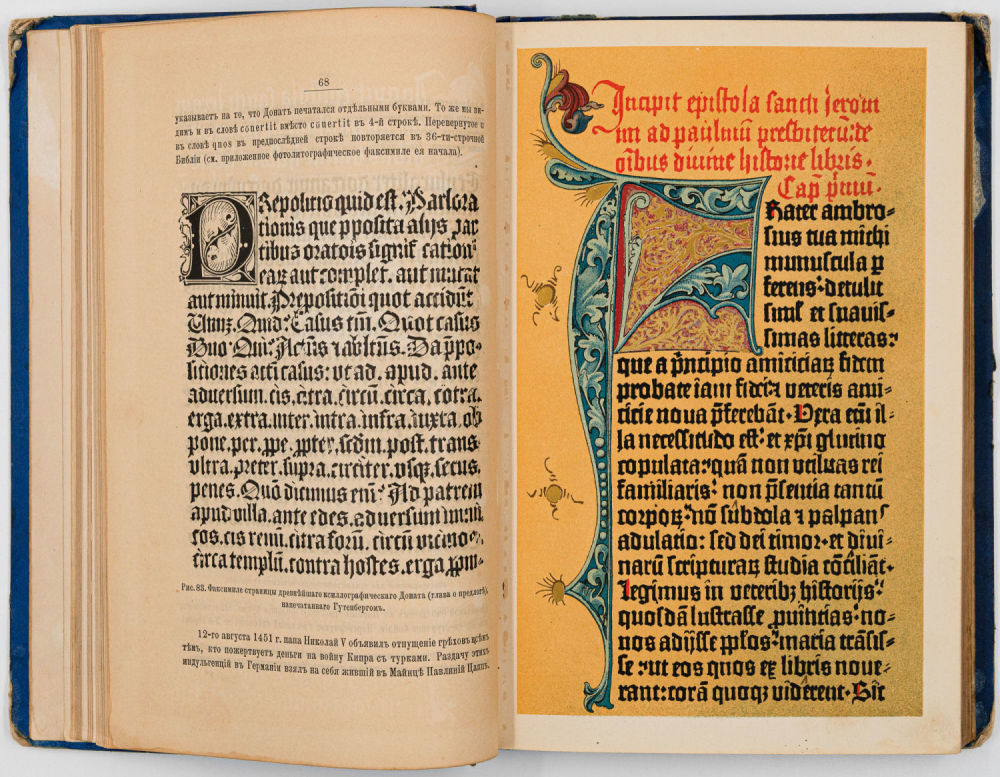 68
указываетъ на то, что Донатъ печатался отдѣльными буквами. То же мы ви-
димъ и въ словѣ conertit вмѣсто conertit въ 4-й строкѣ. Перевернутое
въ словѣ qnos въ предпослѣдней строкѣ повторяется въ 36-ти-строчной
Библіи (см. приложенное фотолитографическое факсимиле ея начала).
PRepositio quid est. Pars ora
tionis que ꝓposita alijs par
tibus oratōis
eaꝝ aut complet. aut mutat
aut minuit. Prepositiōi quot accidūt
Unuꝫ. Quid? Casus tm̄. Quot casus
Duo Qui? Actūs ⁊ ablatiuus. Da ꝓpo-
sitiones acti casus: vt ad. apud. ante
aduersum. cis. citra. circū. circa. cōtra.
erga. extra. inter. intra. infra. iuxta. ob
pone. per. ꝓpe. ꝓpter. scdm. post. trans
vltra. preter. supra. circiter. vsqꝫ. secus.
penes. Quō dicimus eni? Ad patrem
apud villa. ante edes. aduersum inimi
cos. cis renū. citra forū. circū vicinos.
circa templū. contra hostes. erga
Рис. 83. Факсимиле страницы древнѣйшаго ксилографическаго Доната (глава о предлогѣ),
напечатаннаго Гутенбергомъ.
12-го августа 1451 г. папа Николай V объявилъ отпущеніе грѣховъ всѣмъ
тѣмъ, кто пожертвуетъ деньги на войну Кипра съ турками. Раздачу этихъ
индульгенцій въ Германіи взялъ на себя жившій въ Майнцѣ Павлиній Цаппъ.
Incipit epistola sancti Jeroni
mi ad paulinū presbiterū: de
oībus diuine historie libris.
Cap̄ prīmū.
FRater ambro-
sius tua michi
munuscula ꝑ
ferens: detulit
simĺ et suauis-
simas litteras:
que a p̄ncipio amiciciaꝝ fidem
probate iam fidei ⁊ veteris ami-
cicie noua p̄ferebāt. Vera em̄ il-
la necessitudo est: et xp̄i glutino
copulata: quā non vtilitas rei
familiaris: non p̄sentia tantū
corpoꝝ: nō subdola ⁊ palpans
adulatio: sed dei timor. et diui-
narū scripturaꝝ studia cōciliāt.
Legimus in veteribꝫ historijs:
quosdā lustrasse ꝓuincias: no-
uos adijsse pplos: maria trāsis-
se: ut eos quos ex libris noue-
rant: corā quoqꝫ viderent. Sic